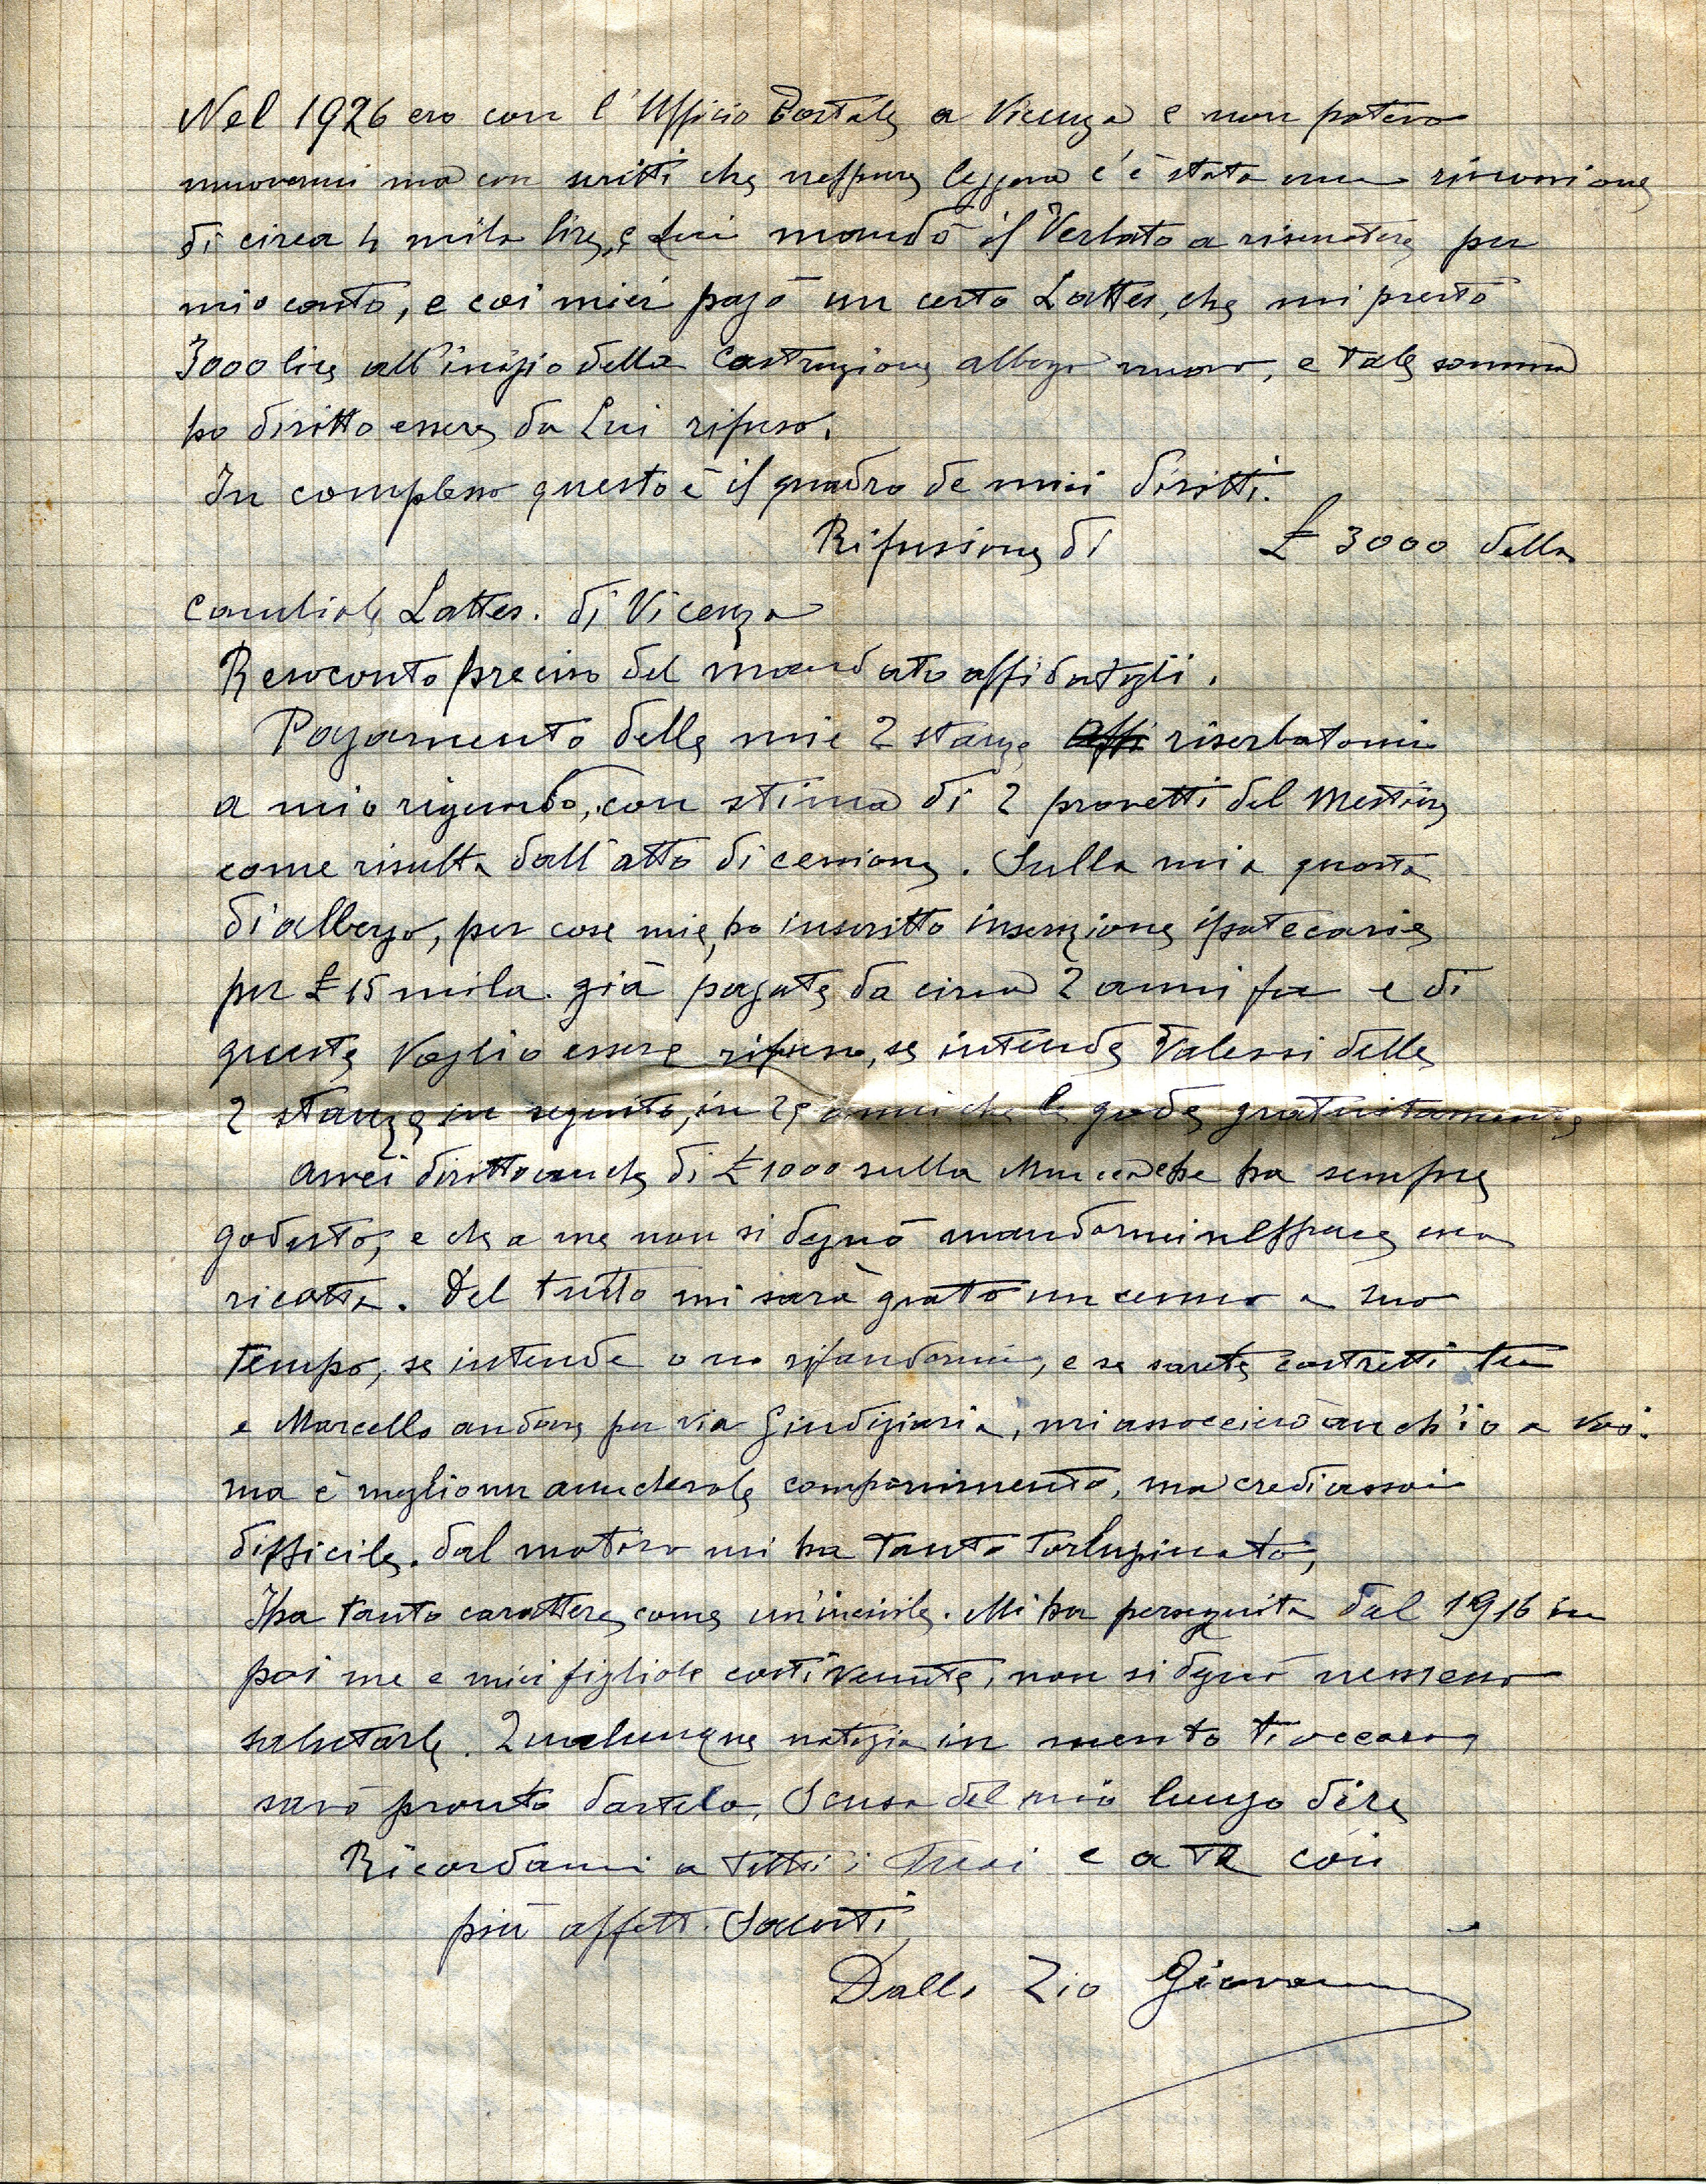 Nel 1926 ero con l'Ufficio Postale a Vicenza e non potevo
muovermi ma con scritti che neppure leggeva c'è stata una
di circa 4 mila lire, e Lui mandò il Verlato a riscuotere per
mio conto, e coi miei pagò un certo Lattes, che mi prestò
3000 lire all'inizio della Costruzione albergo nuovo, e tale somma
ho diritto essere da Lui rifuso.
In complesso questo è il quadro de miei diritti.
Rifusione di £ 3000 della
Cambiale Lattes. di Vicenza
Resoconto preciso del mandato affidatogli.
Pagamento delle mie 2 stanze riserbatomi
a mio riguardo, con stima di 2 provetti del Mestiere
come risulta dall'atto di cessione. Sulla mia quota
di albergo, per cose mie, ho inscritto inserzione ipotecaria
per £ 15 mila. già pagate da circa 2 anni fa e di
queste Voglio essere rifuso, se intende Valersi delle
2 stanze in seguito, in anni che le gode gratuitamente
Avrei diritto anche di £ 1000 sulla che ha sempre
goduto, e che a me non si degnò mandarmi neppure una
ricotta. Del tutto mi sarà grato un cenno a suo
tempo, se intende o no rifondermi, e se sarete costretti tu
e Marcello andare per via Giudiziaria, mi associerò anch'io a voi.
ma è meglio un amichevole componimento, ma credi assai
difficile. dal motivo mi ha tanto Turlupinato,
Ha tanto carattere come un'incivile. Mi ha perseguita dal 1916 in
poi me e miei figliole costì venute, non si degnò nemmeno
salutarle. Qualunque notizia in merito ti occorre
sarò pronto dartela, Scusa del mio lungo dire
Ricordami a tutti i Tuoi e a Te coi
più affett. Saluti
Dallo Zio Giovanni